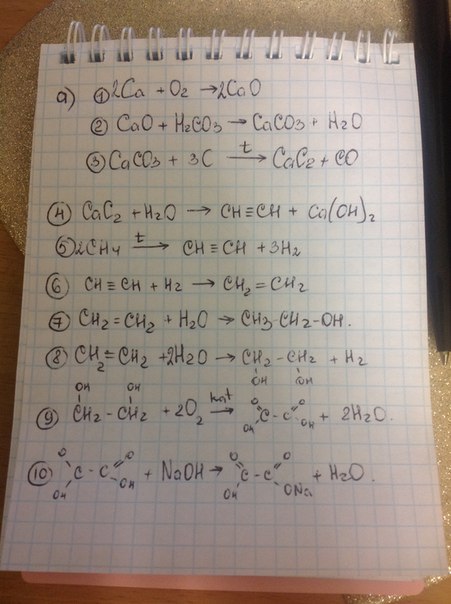 а) ① 2Ca + O2 → 2CaO
② CaO + H2CO3 → CaCO3 + H2O
③ CaCO3 + 3C t→ CaC2 + CO
④ CaC2 + H2O → CH≡CH + Ca(OH)2
⑤ 2CH4 t→ CH≡CH + 3H2
⑥ CH≡CH + H2 → CH2=CH2
⑦ CH2=CH2 + H2O → CH3-CH2-OH.
⑧ CH2=CH2 + 2H2O → CH2-CH2 + H2
OH OH
OH OH
⑨ CH2-CH2 + 2O2 kat→ O C-C O + 2H2O.
OH OH
O O O O
⑩ C-C + NaOH → C-C + H2O.
OH OH OH ONa